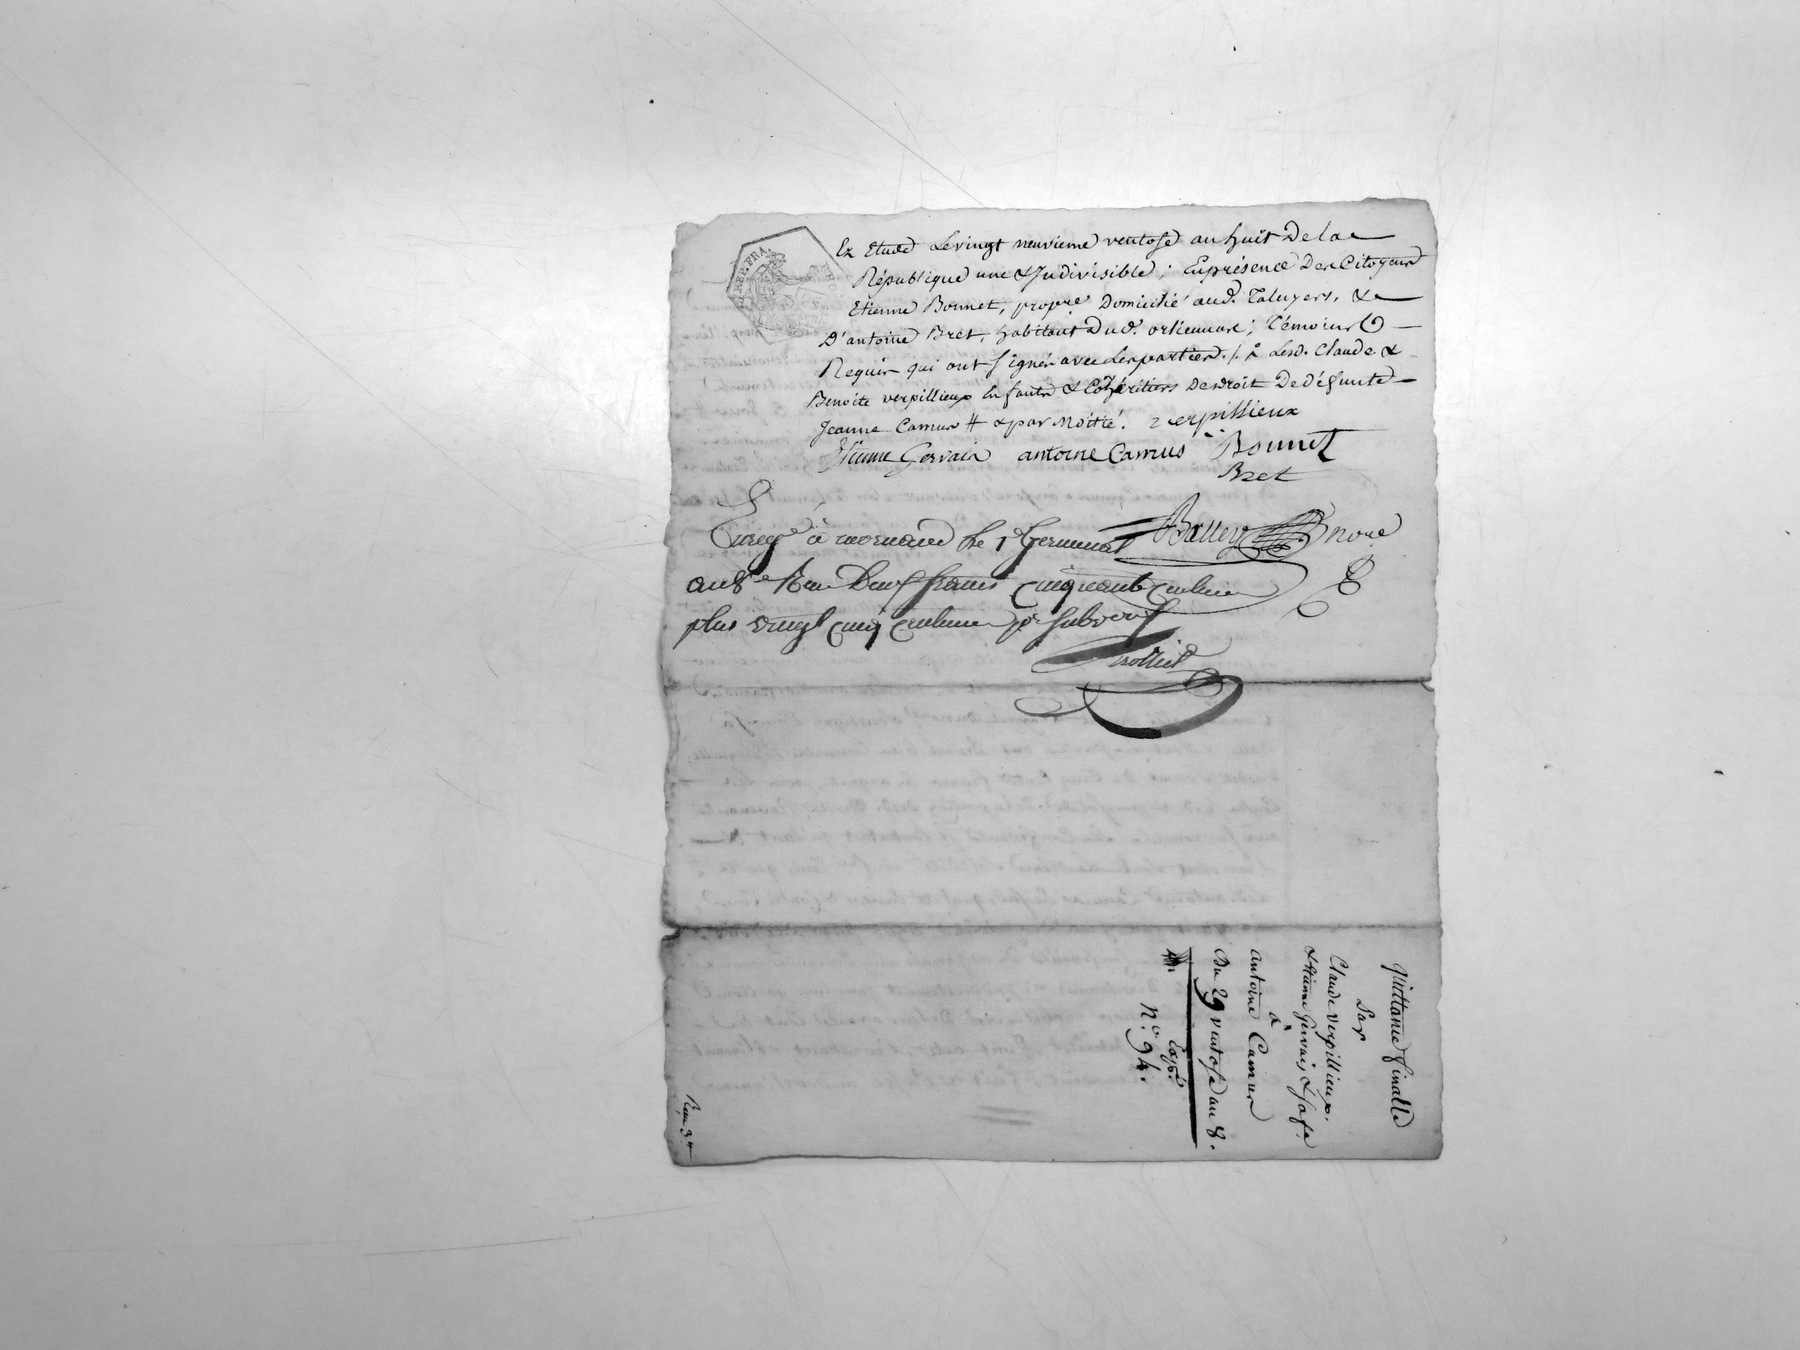 REP. FRA.
Ez Etude Le vingt neuvieme ventose an huit De la
République une & Indivisible; En présence Des Citoyens
Etienne Bonnet, propre. Domicilié aud. Taluyers, &
D'antoine Bret, habitant Dud. orlienuas; Témoins
Requis qui ont signés avec Les parties. /. à Lesd. Claude &
Benoite verpillieux Enfants & Cohéritiers De droit De défunte
Jeanne Camus # & par Moitié. verpillieux
Etienne Gervais antoine Camus Bonnet
Bret
Balley nore
Enregé à mornand Le 1er Germinal
an 8e Reçu Deux francs cinquante Centimes
plus vingt cinq Centimes pr subvent
Quittance finalle
Par
Claude verpillieux.
& Etienne Gervais & sa fe.
à
Antoine Camus
Du 29 ventose an 8.
Exp.
N.o 94.